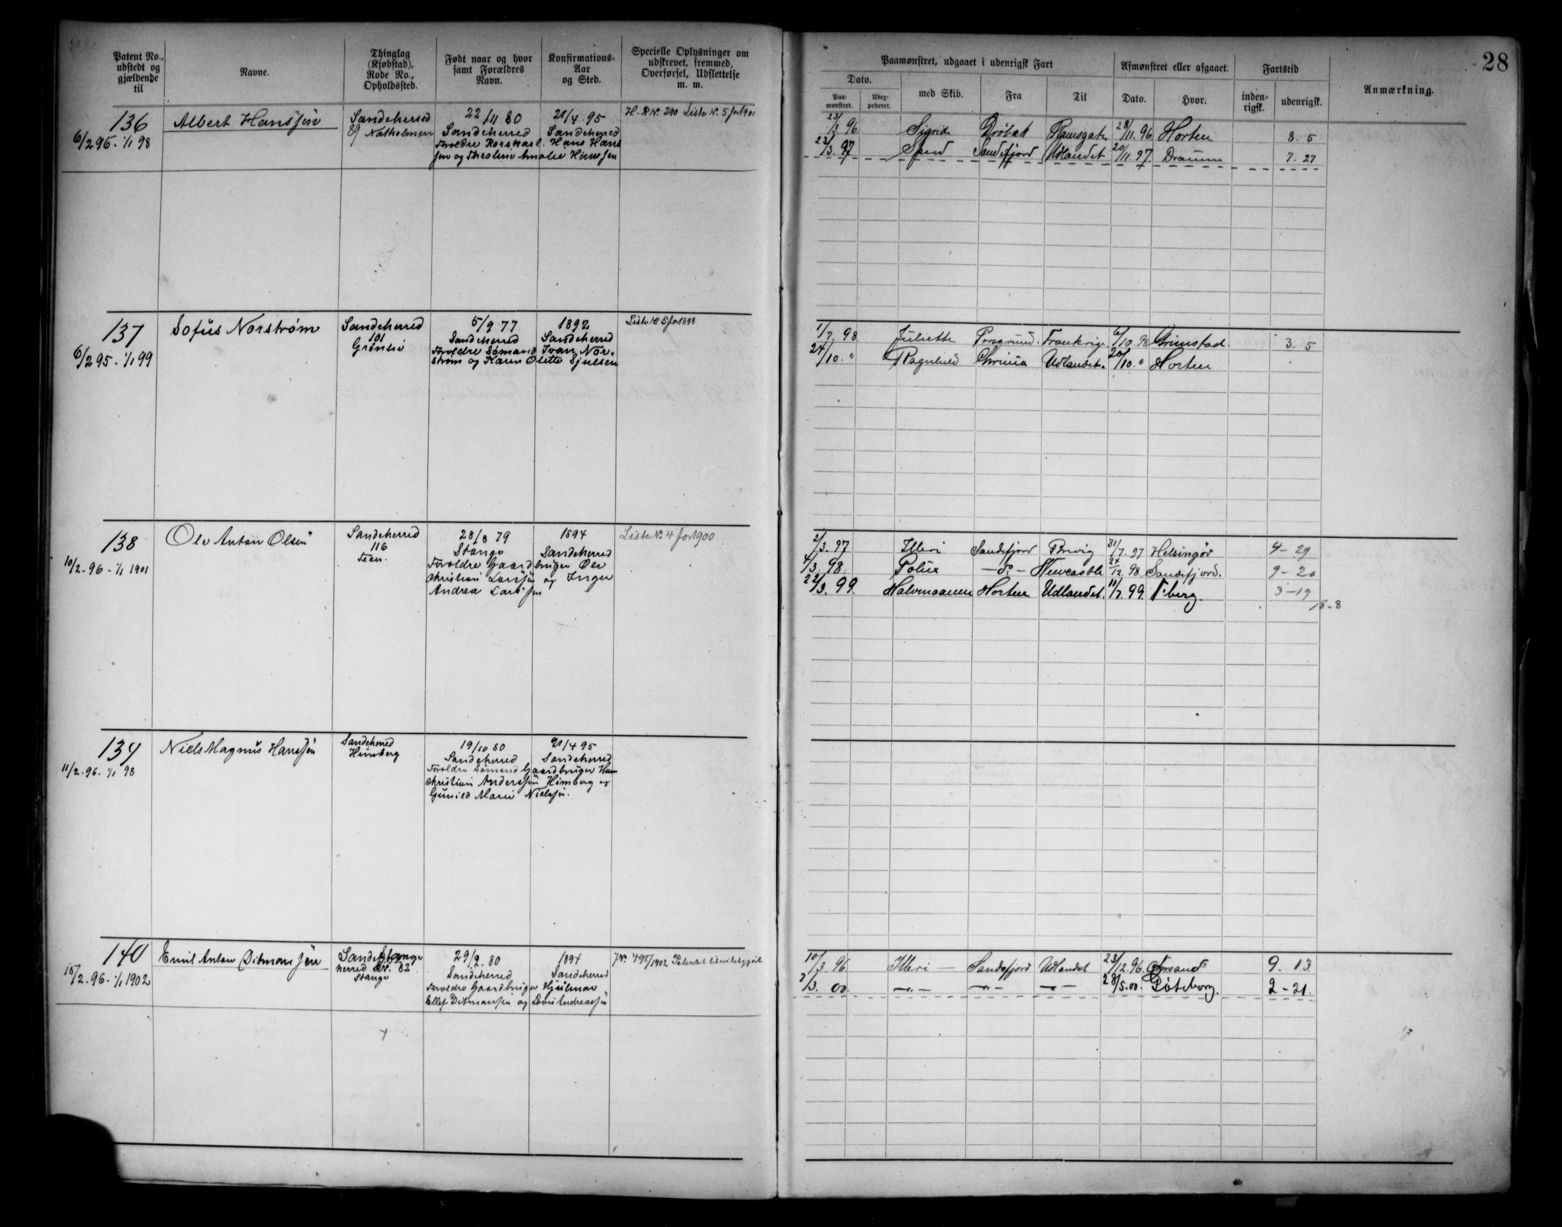 28
Patent No., udstedt og gjældende til
Navne.
Thinglag (Kjøbstad), Rode No., Opholdssted.
Født naar og hvor samt Forældres Navn.
Konfirmations-Aar og Sted.
Specielle Oplysninger om udskrevet, fremmed, Overførsel, Udslettelse m. m.
Paamønstret, udgaaet i udenrigsk Fart
Afmønstret eller afgaaet.
Fartstid
Anmærkning.
Dato.
Paa-mønstret.
Udex-pederet.
med Skib.
Fra
Til
Dato.
Hvor.
inden-rigsk.
udenrigsk.
136
6/2 96 - 1/1 98
Albert Hanssen
Sandeherred
89 Natholmen
22/11 80
Sandeherred
Forældre
Hans Hans
sen og Amalie Hanssen
21/4 95
Sandeherred
H. R. No. 290 Liste No. 5 for 1901
23/3 96 Sigrid Drøbak Ramsgate 28/11 96 Horten 8. 5
23/3 97 Sand Sandefjord Udlandet 20/11 97 Drammen 7. 27
137
6/2 95 - 1/1 99
Sofus Norstrøm
Sandeherred
101
5/9 77
Sandeherred
Forældre Sømand Ivar Nor-
strøm og Karen Olette
1892
Sandeherred
Liste No 5 for 1898
1/7 98 Juliette Porsgrund Frankrig 6/10 98 Grimstad 3. 5
24/10 " Ragnhild Udlandet /10 " Horten
138
10/2 96 - 1/1 1901
Ole Anton Olsen
Sandeherred
116
28/8 79
Stange
Forældre Gaardbruger Ole
Christian Larssen og Inger
Andrea Larssen
1894
Sandeherred
Liste No. 4 for 1900
2/3 97 Sandefjord 31/7 97 Helsingør 4 - 29
4/3 98 Polux - d. - Newcastle 24/12 98 Sandefjord. 9 - 20
22/3 99 Halvmaanen Horten Udlandet 11/7 99 T'berg 3 - 19
18 - 8
139
11/2 96 - 1/1 98
Niels Magnus Hanssen
Sandeherred
Himberg
19/10 80
Sandeherred
Forældre Sømand Gaardbruger Hans
Christian Anderssen Himberg og
Gunild Marie Nielsen.
21/4 95
Sandeherred
140
15/2 96 - 1/1 1902
Emil Anton Ditmanssen
Sandeherred
Stange
82
29/2 80
Sandeherred
Forældre Gaardbruger Hjelmar
Ellef Ditmanssen og Andreassen
1894
Sandeherred
J.No. 495/1902
10/3 96 Sandefjord Udlandet 23/12 96 9. 13.
1/3 00 -"- -"- -"- 28/5 00 Gøteborg. 2 - 21.